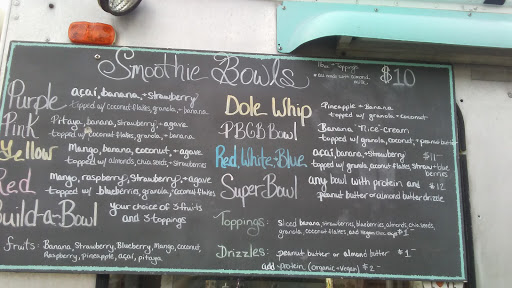 Smoothie Bowls
+ Toppings
*all made with almond milk
$10
Purple
açaí, banana, + strawberry
topped w/ coconut flakes, granola, + banana
Pink
Pitaya, banana, strawberry, + agave
topped w/ coconut flakes, granola, + banana
Yellow
Mango, banana, coconut, + agave
topped w/ almonds, chia seeds, + strawberries
Red
mango, raspberry, strawberry, + agave
topped w/ blueberries, granola, coconut flakes
Build-a-Bowl
your choice of 3 fruits
and 3 toppings
fruits: Banana, Strawberry, Blueberry, Mango, coconut,
Raspberry, pineapple, açaí, pitaya
Dole Whip
Pineapple + Banana
topped w/ granola + coconut
PBGB Bowl
Banana "Nice-cream
topped w/ granola, coconut, + peanut butter
Red, White + Blue
açaí, banana, + strawberry $11-
topped w/ granola, coconut flakes, straw + blue berries
Super Bowl
any bowl with protein and $12
peanut butter or almond butter drizzle
Toppings: sliced banana, strawberries, blueberries, almonds, chia seeds,
granola, coconut flakes, and vegan choc chips $1
Drizzles: peanut butter or almond butter $1-
add protein (organic + vegan) $2-